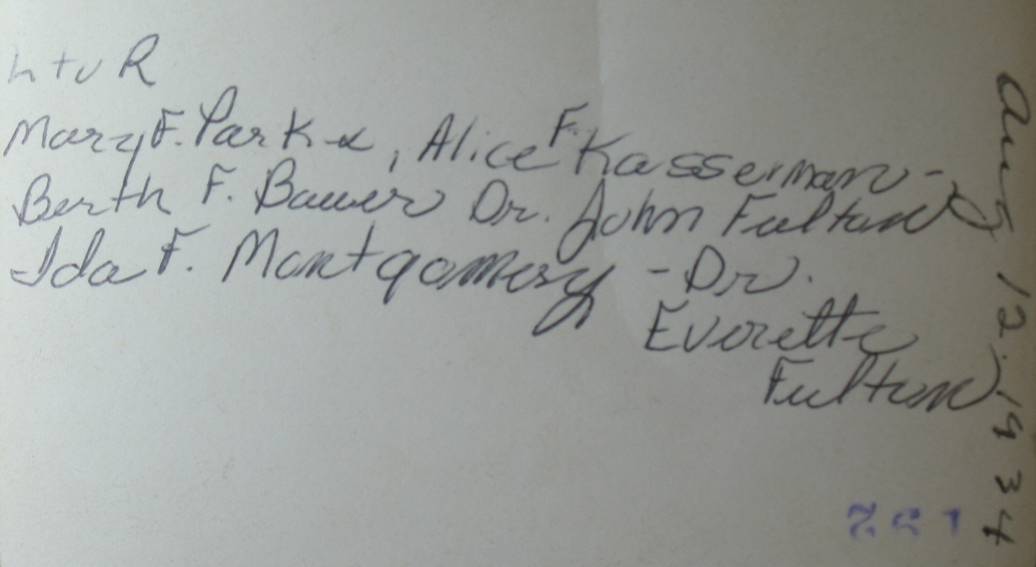 L to R
Mary F. Parke, Alice F. Kasserman -
Berth F. Bauer Dr. John Fulton
Ida F. Montgomery - Dr.
Everette
Fulton
Aug 12. 1934